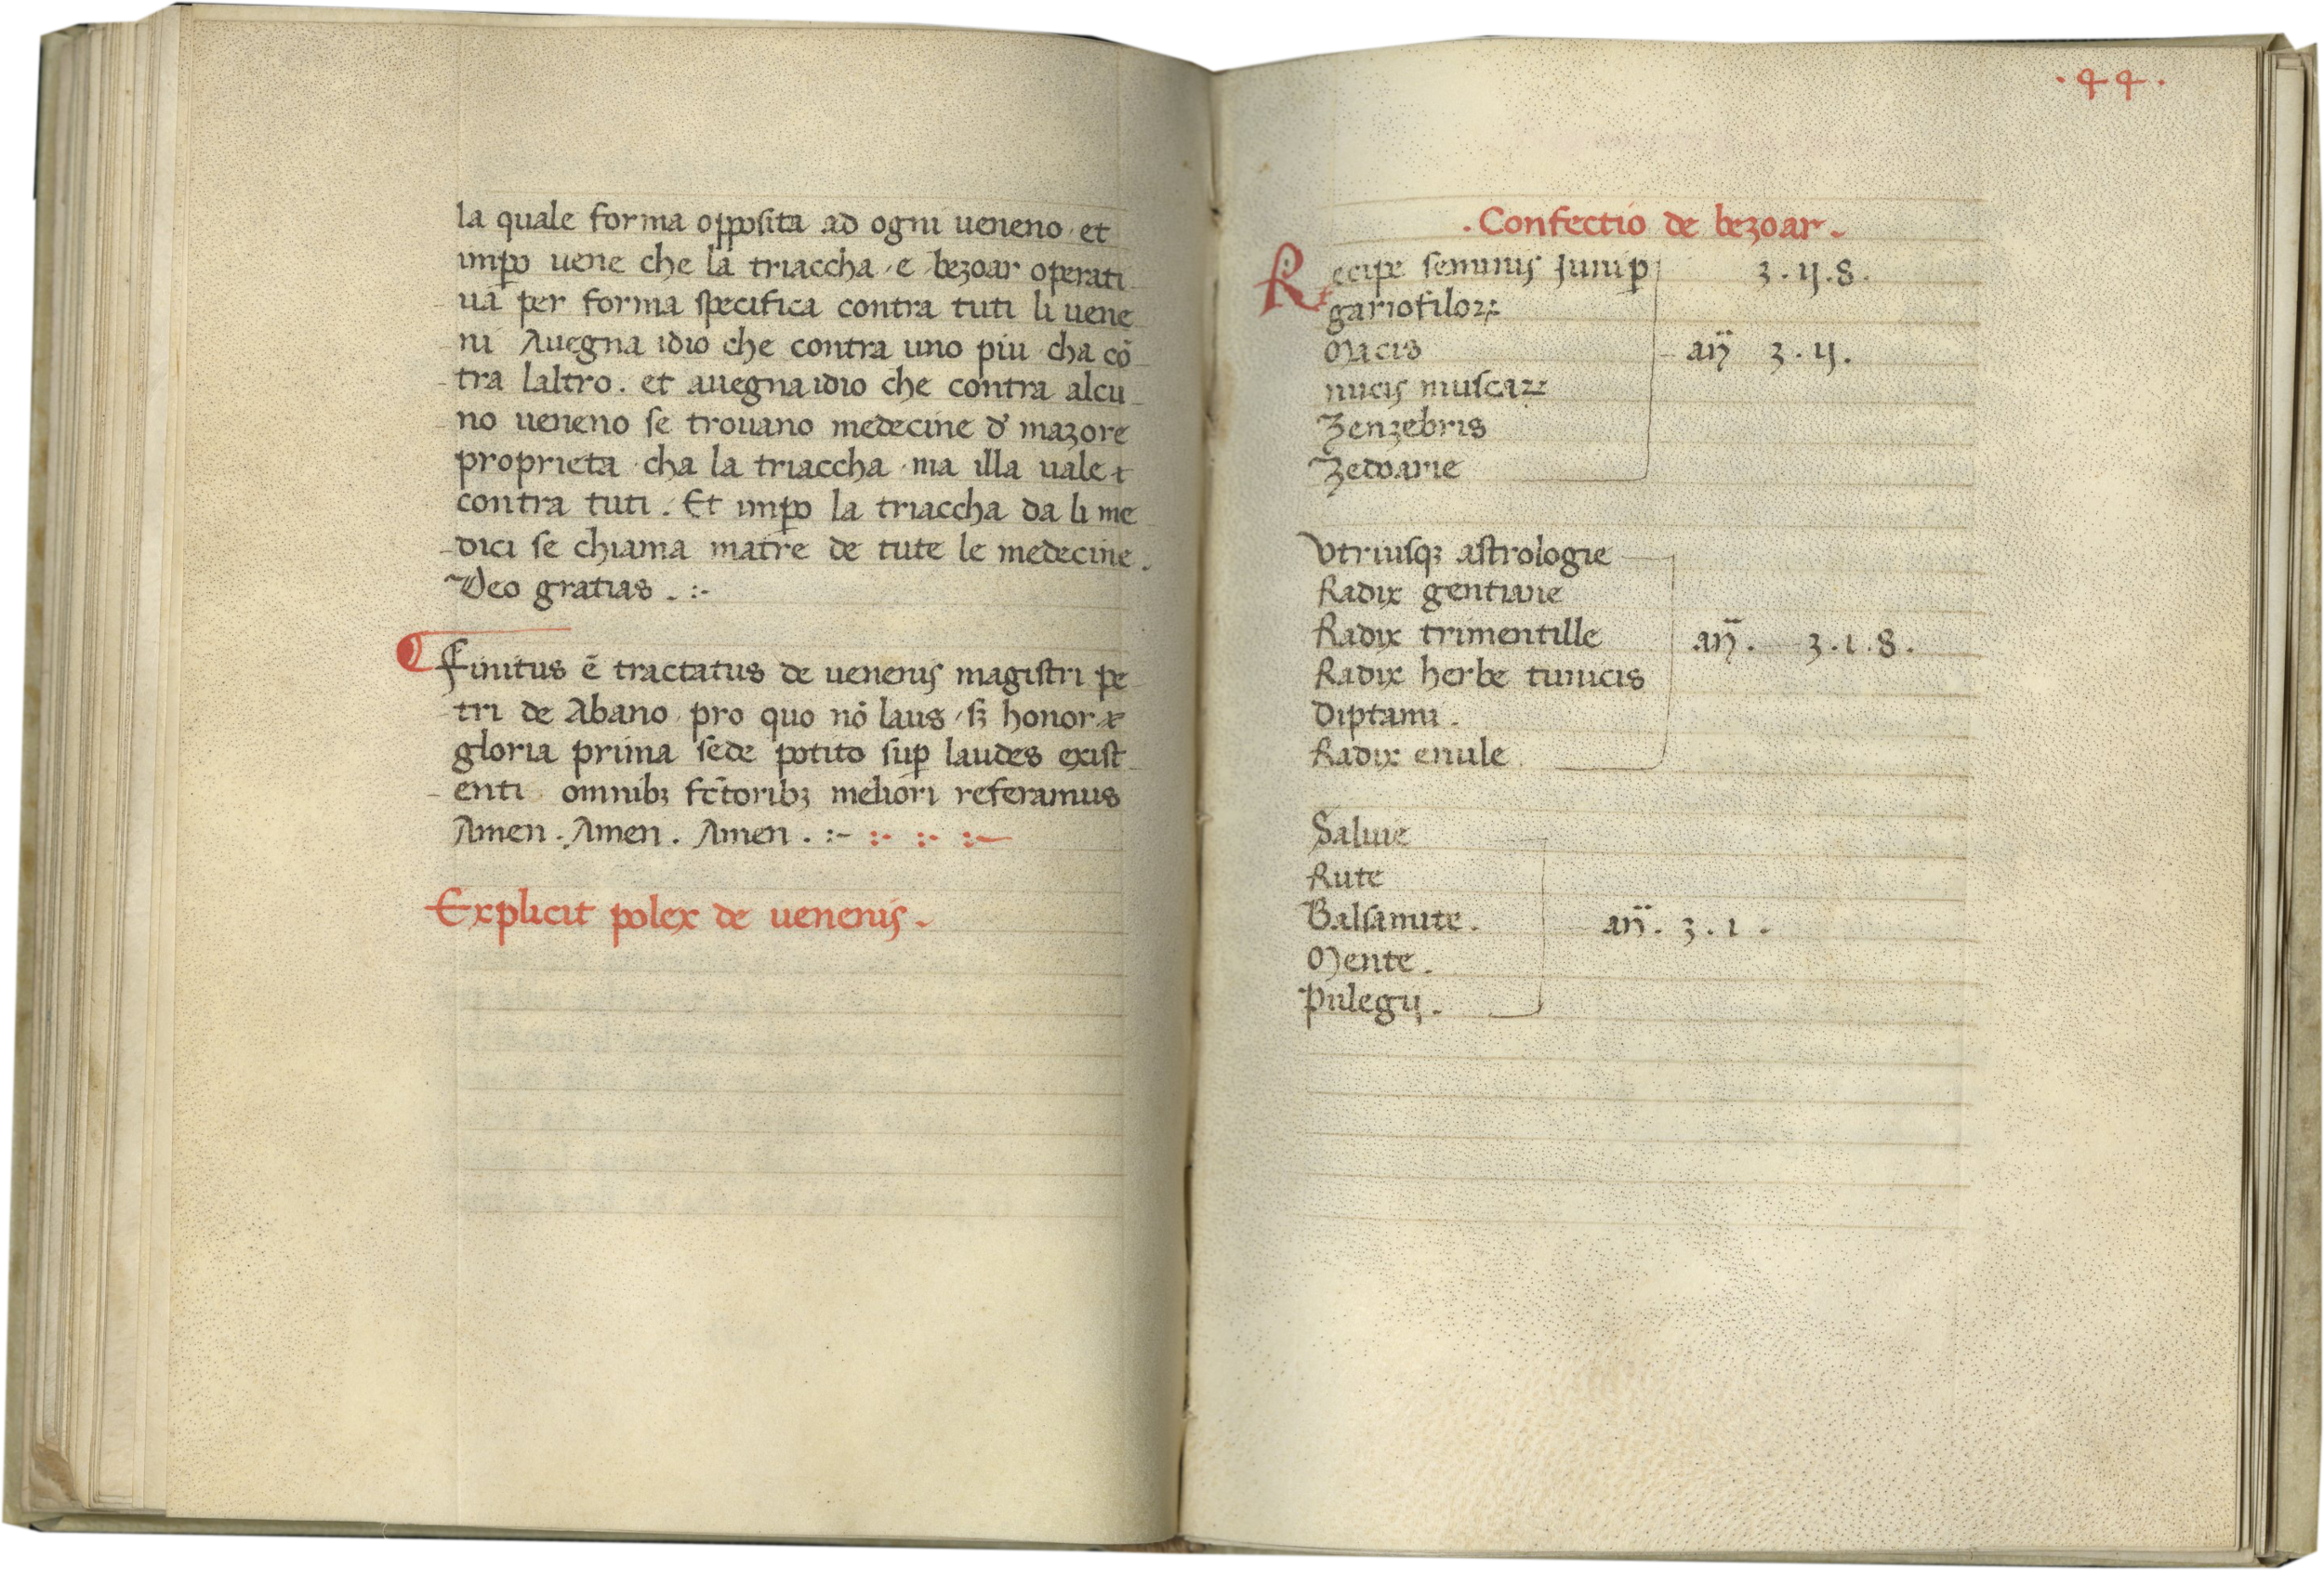 la quale forma opposita ad ogni ueneno et
imꝑo uene che la triaccha e bezoar operati
uā per forma specifica contra tuti li uene
ni Auegna idio che contra uno piu cha cō
tra laltro. et auegna idio che contra alcu
no ueneno se trouano medecine d' mazore
proprieta cha la triaccha ma illa uale
contra tuti. Et imꝑo la triaccha da li me
dici se chiama matre de tute le medecine.
Deo gratias. :-
Finitus ē tractatus de uenenis magistri pe
tri de Abano pro quo nō laus sꝫ honor
gloria prima sede potito suꝑ laudes exist
enti omnibꝫ fc̄toribꝫ meliori referamus
Amen. Amen. Amen. :- :- :- :-
Explicit polex de uenenis.
·44·
·Confectio de bezoar.
Recipe seminis Juniꝑ ʒ.ij.s.
gariofiloꝝ
Macis añ ʒ.ij.
nucis muscaꝝ
Zenzebris
Zedoarie
Vtriusqꝫ astrologie
Radix gentiane
Radix trimentille añ. ʒ.i.s.
Radix herbe tunicis
Diptami.
Radix enule.
Saluie
Rute
Balsamite. añ. ʒ.i.
Mente.
Pulegij.